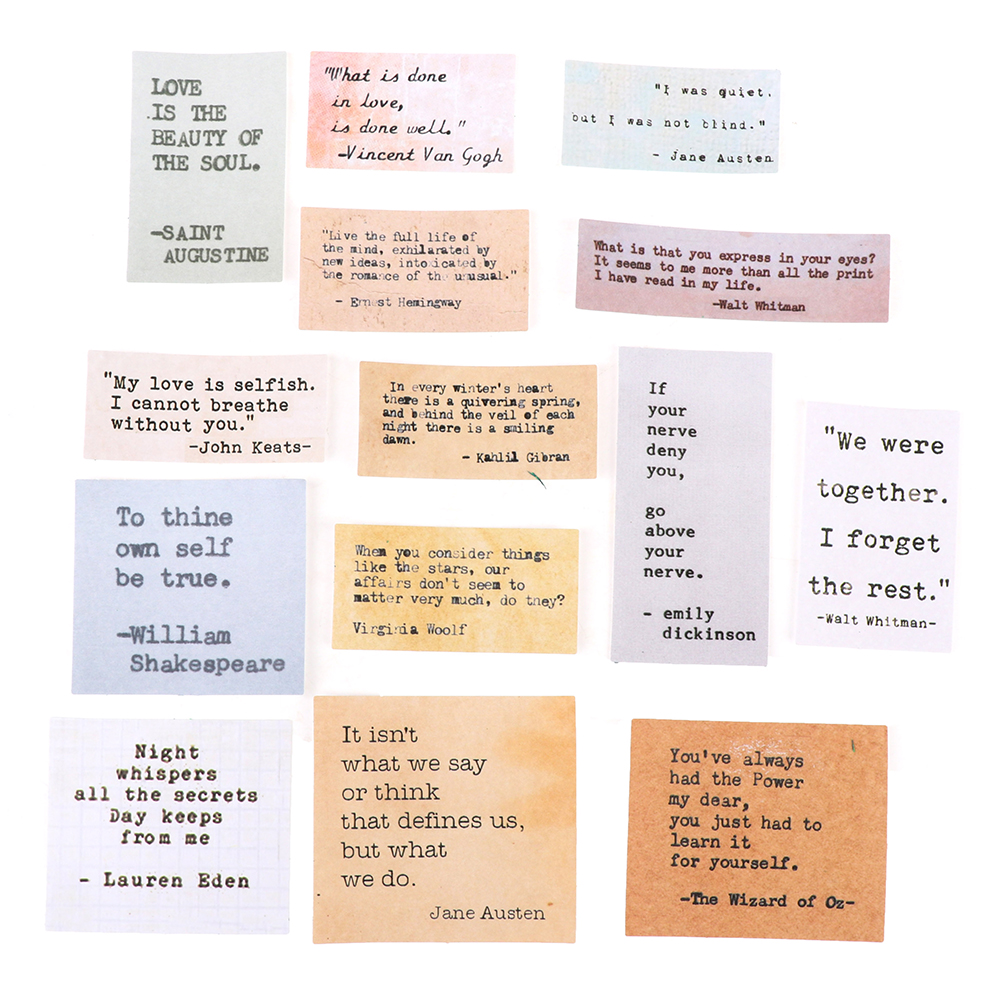 LOVE
IS THE
BEAUTY OF
THE SOUL.
—SAINT
AUGUSTINE
"What is done
in love,
is done well."
-Vincent Van Gogh
"I was quiet,
but I was not blind."
- Jane Austen
"Live the full life of
the mind, exhilarated by
new ideas, intoxicated by
the romance of the unusual."
- Ernest Hemingway
What is that you express in your eyes?
It seems to me more than all the print
I have read in my life.
-Walt Whitman
"My love is selfish.
I cannot breathe
without you."
-John Keats-
In every winter's heart
there is a quivering spring,
and behind the veil of each
night there is a smiling
dawn.
- Kahlil Gibran
If
your
nerve
deny
you,
go
above
your
nerve.
- emily
dickinson
"We were
together.
I forget
the rest."
-Walt Whitman-
To thine
own self
be true.
—William
Shakespeare
When you consider things
like the stars, our
affairs don't seem to
matter very much, do they?
Virginia Woolf
Night
whispers
all the secrets
Day keeps
from me
- Lauren Eden
It isn't
what we say
or think
that defines us,
but what
we do.
Jane Austen
You've always
had the Power
my dear,
you just had to
learn it
for yourself.
-The Wizard of Oz-